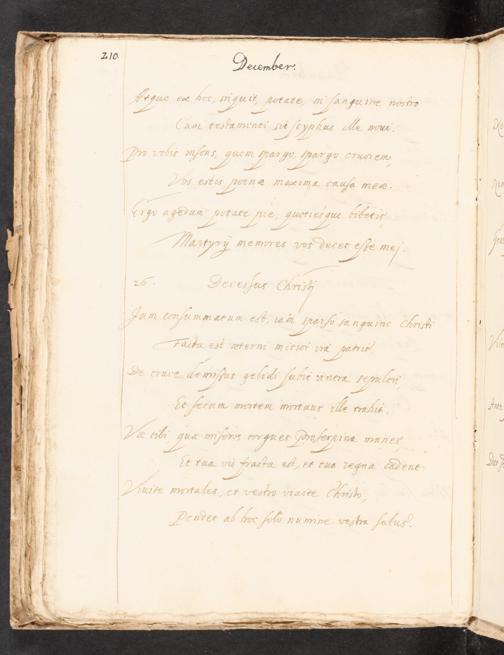 210.
December.
Atque ex hoc, inquit, potate, in sanguine nostro
Cum testamenti sit scyphus ille novi.
Pro vobis insons, quem spargo, spargo cruorem,
Vos estis poenae maxima causa meae.
Ergo agedum potate pie, quotiesque bibetis
Martyrij memores vos decet esse mei.
26. Decessus Christi
Jam consummatum est, iam sparso sanguine Christi
Facta est aeterni via patris.
De cruce demissus gelidi subit sepulcri,
Et secum mortem mortuus ille trahit.
Vae tibi, quae miseros torques Proserpina manes,
Et tua vis fracta est, et tua regna cadent.
Vivite mortales, et vestro vivite Christo,
Pendet ab hoc solo numine vestra salus.